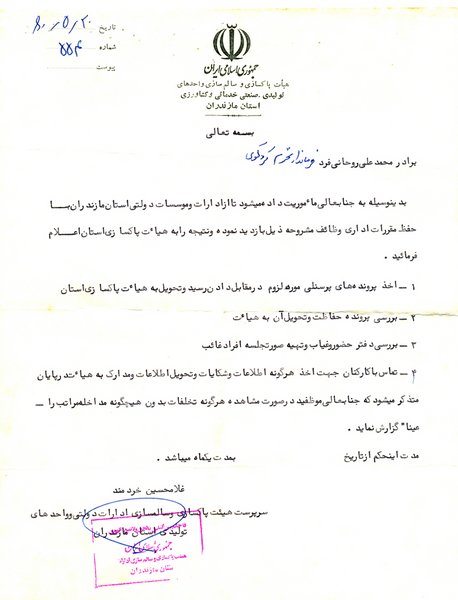 تاریخ ۶۰/۵/۲۰
شماره ۷۷۴
پیوست
جمهوری اسلامی ایران
هیأت پاکسازی و سالم سازی واحدهای
تولیدی، صنعتی خدماتی و کشاورزی
استان مازندران
بسمه تعالی
برادر محمدعلی روحانی فرد فرماندار محترم کردکوی
بدینوسیله به جنابعالی مأموریت داده میشود تا از ادارات و موسسات دولتی استان مازندران با
حفظ مقررات اداری وظائف مشروحه ذیل بازدید نموده و نتیجه را به هیأت پاکسازی استان اعلام
فرمائید .
۱ ــ اخذ پرونده های پرسنلی مورد لزوم در مقابل دادن رسید و تحویل به هیأت پاکسازی استان
۲ ــ بررسی پرونده حفاظت و تحویل آن به هیأت
۳ ــ بررسی دفتر حضور و غیاب و تهیه صورتجلسه افراد غائب
۴ ــ تماس با کارکنان جهت اخذ هرگونه اطلاعات و شکایات و تحویل اطلاعات و مدارک به هیأت در پایان
متذکر میشود که جنابعالی موظفید در صورت مشاهده هرگونه تخلفات بدون هیچگونه مداخله مراتب را ــ
عیناً گزارش نماید .
مدت این حکم از تاریخ بمدت یکماه میباشد .
غلامحسین خردمند
سرپرست هیئت پاکسازی و سالمسازی ادارات دولتی و واحدهای
تولیدی استان مازندران
جمهوری اسلامی ایران
هیئت پاکسازی و سالم سازی
استان مازندران